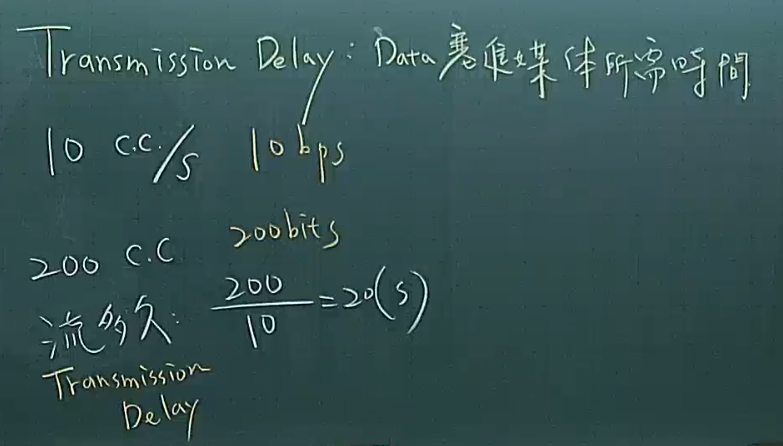 Transmission Delay : Data 塞進媒体所需時間
10 c.c./s 10bps
200 c.c 200bits
流多久: 200/10=20(s)
Transmission
Delay